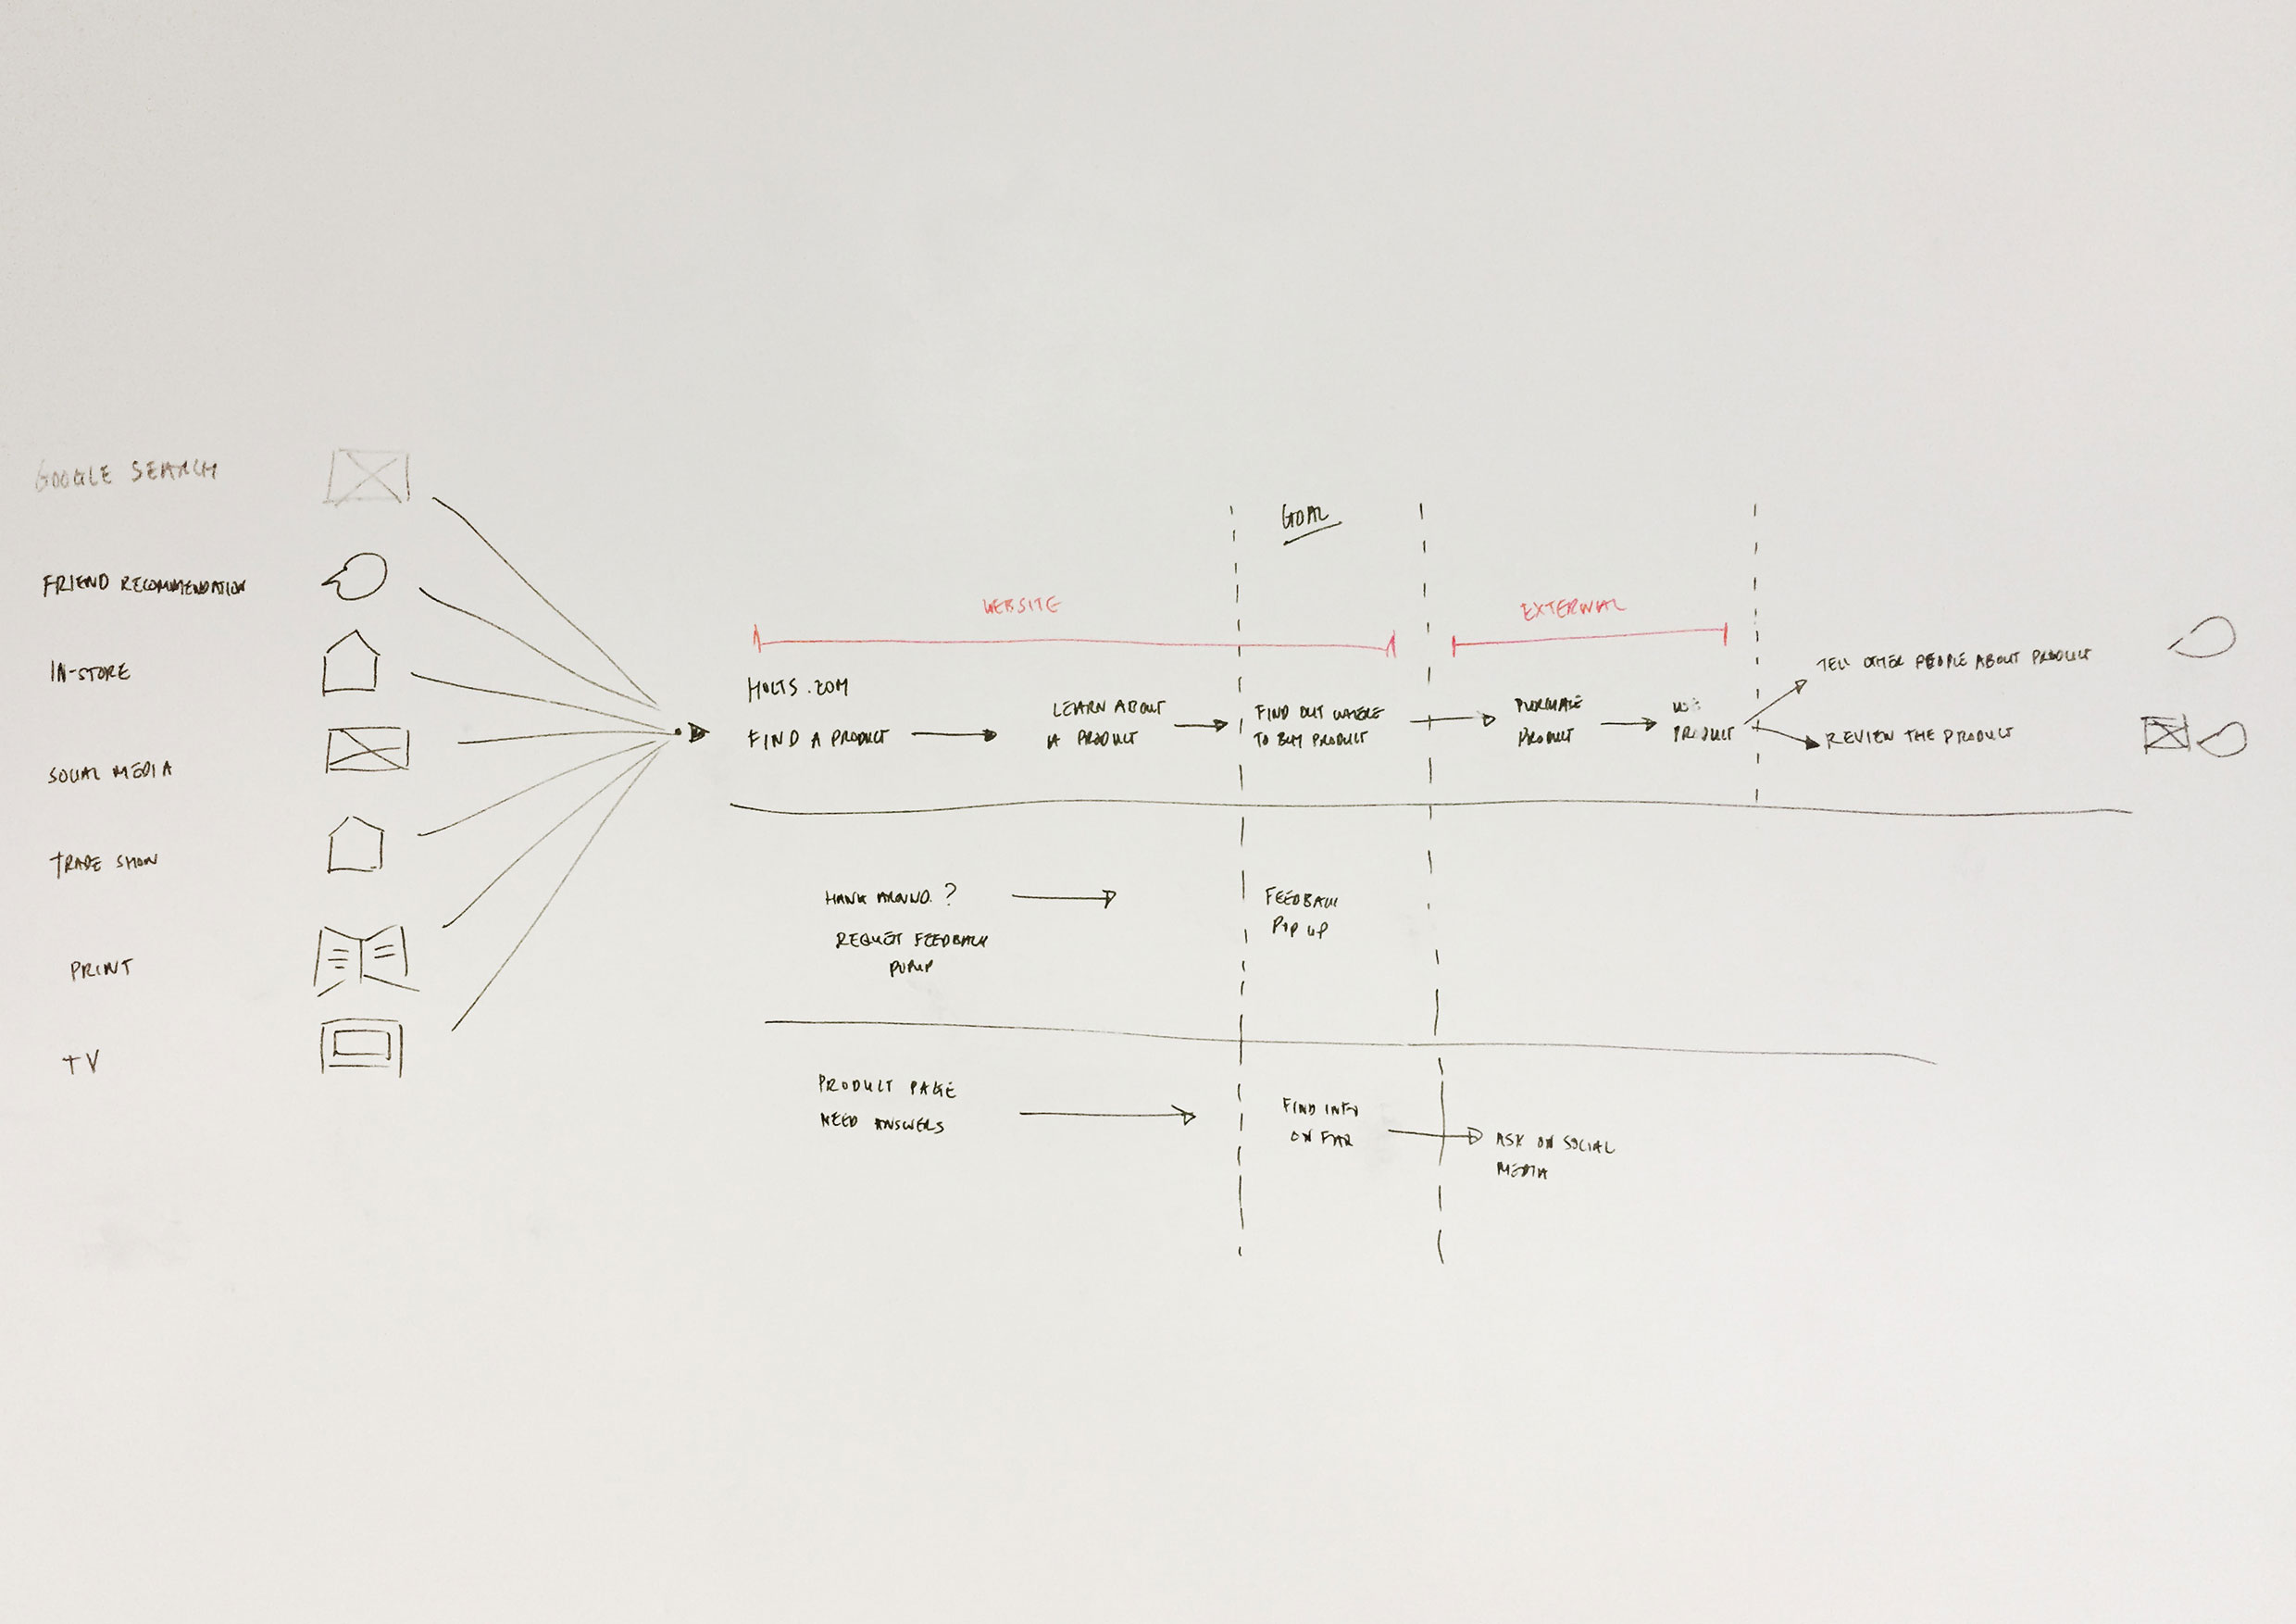 GOOGLE SEARCH
FRIEND RECOMMENDATION
IN-STORE
SOCIAL MEDIA
TRADE SHOW
PRINT
TV
GOAL
WEBSITE
EXTERNAL
HOLTS.COM
FIND A PRODUCT
LEARN ABOUT
A PRODUCT
FIND OUT WHERE
TO BUY PRODUCT
PURCHASE
PRODUCT
USE
PRODUCT
TELL OTHER PEOPLE ABOUT PRODUCT
REVIEW THE PRODUCT
HANG AROUND.?
REQUEST FEEDBACK
POPUP
FEEDBACK
POP UP
PRODUCT PAGE
NEED ANSWERS
FIND INFO
ON FAQ
ASK ON SOCIAL
MEDIA